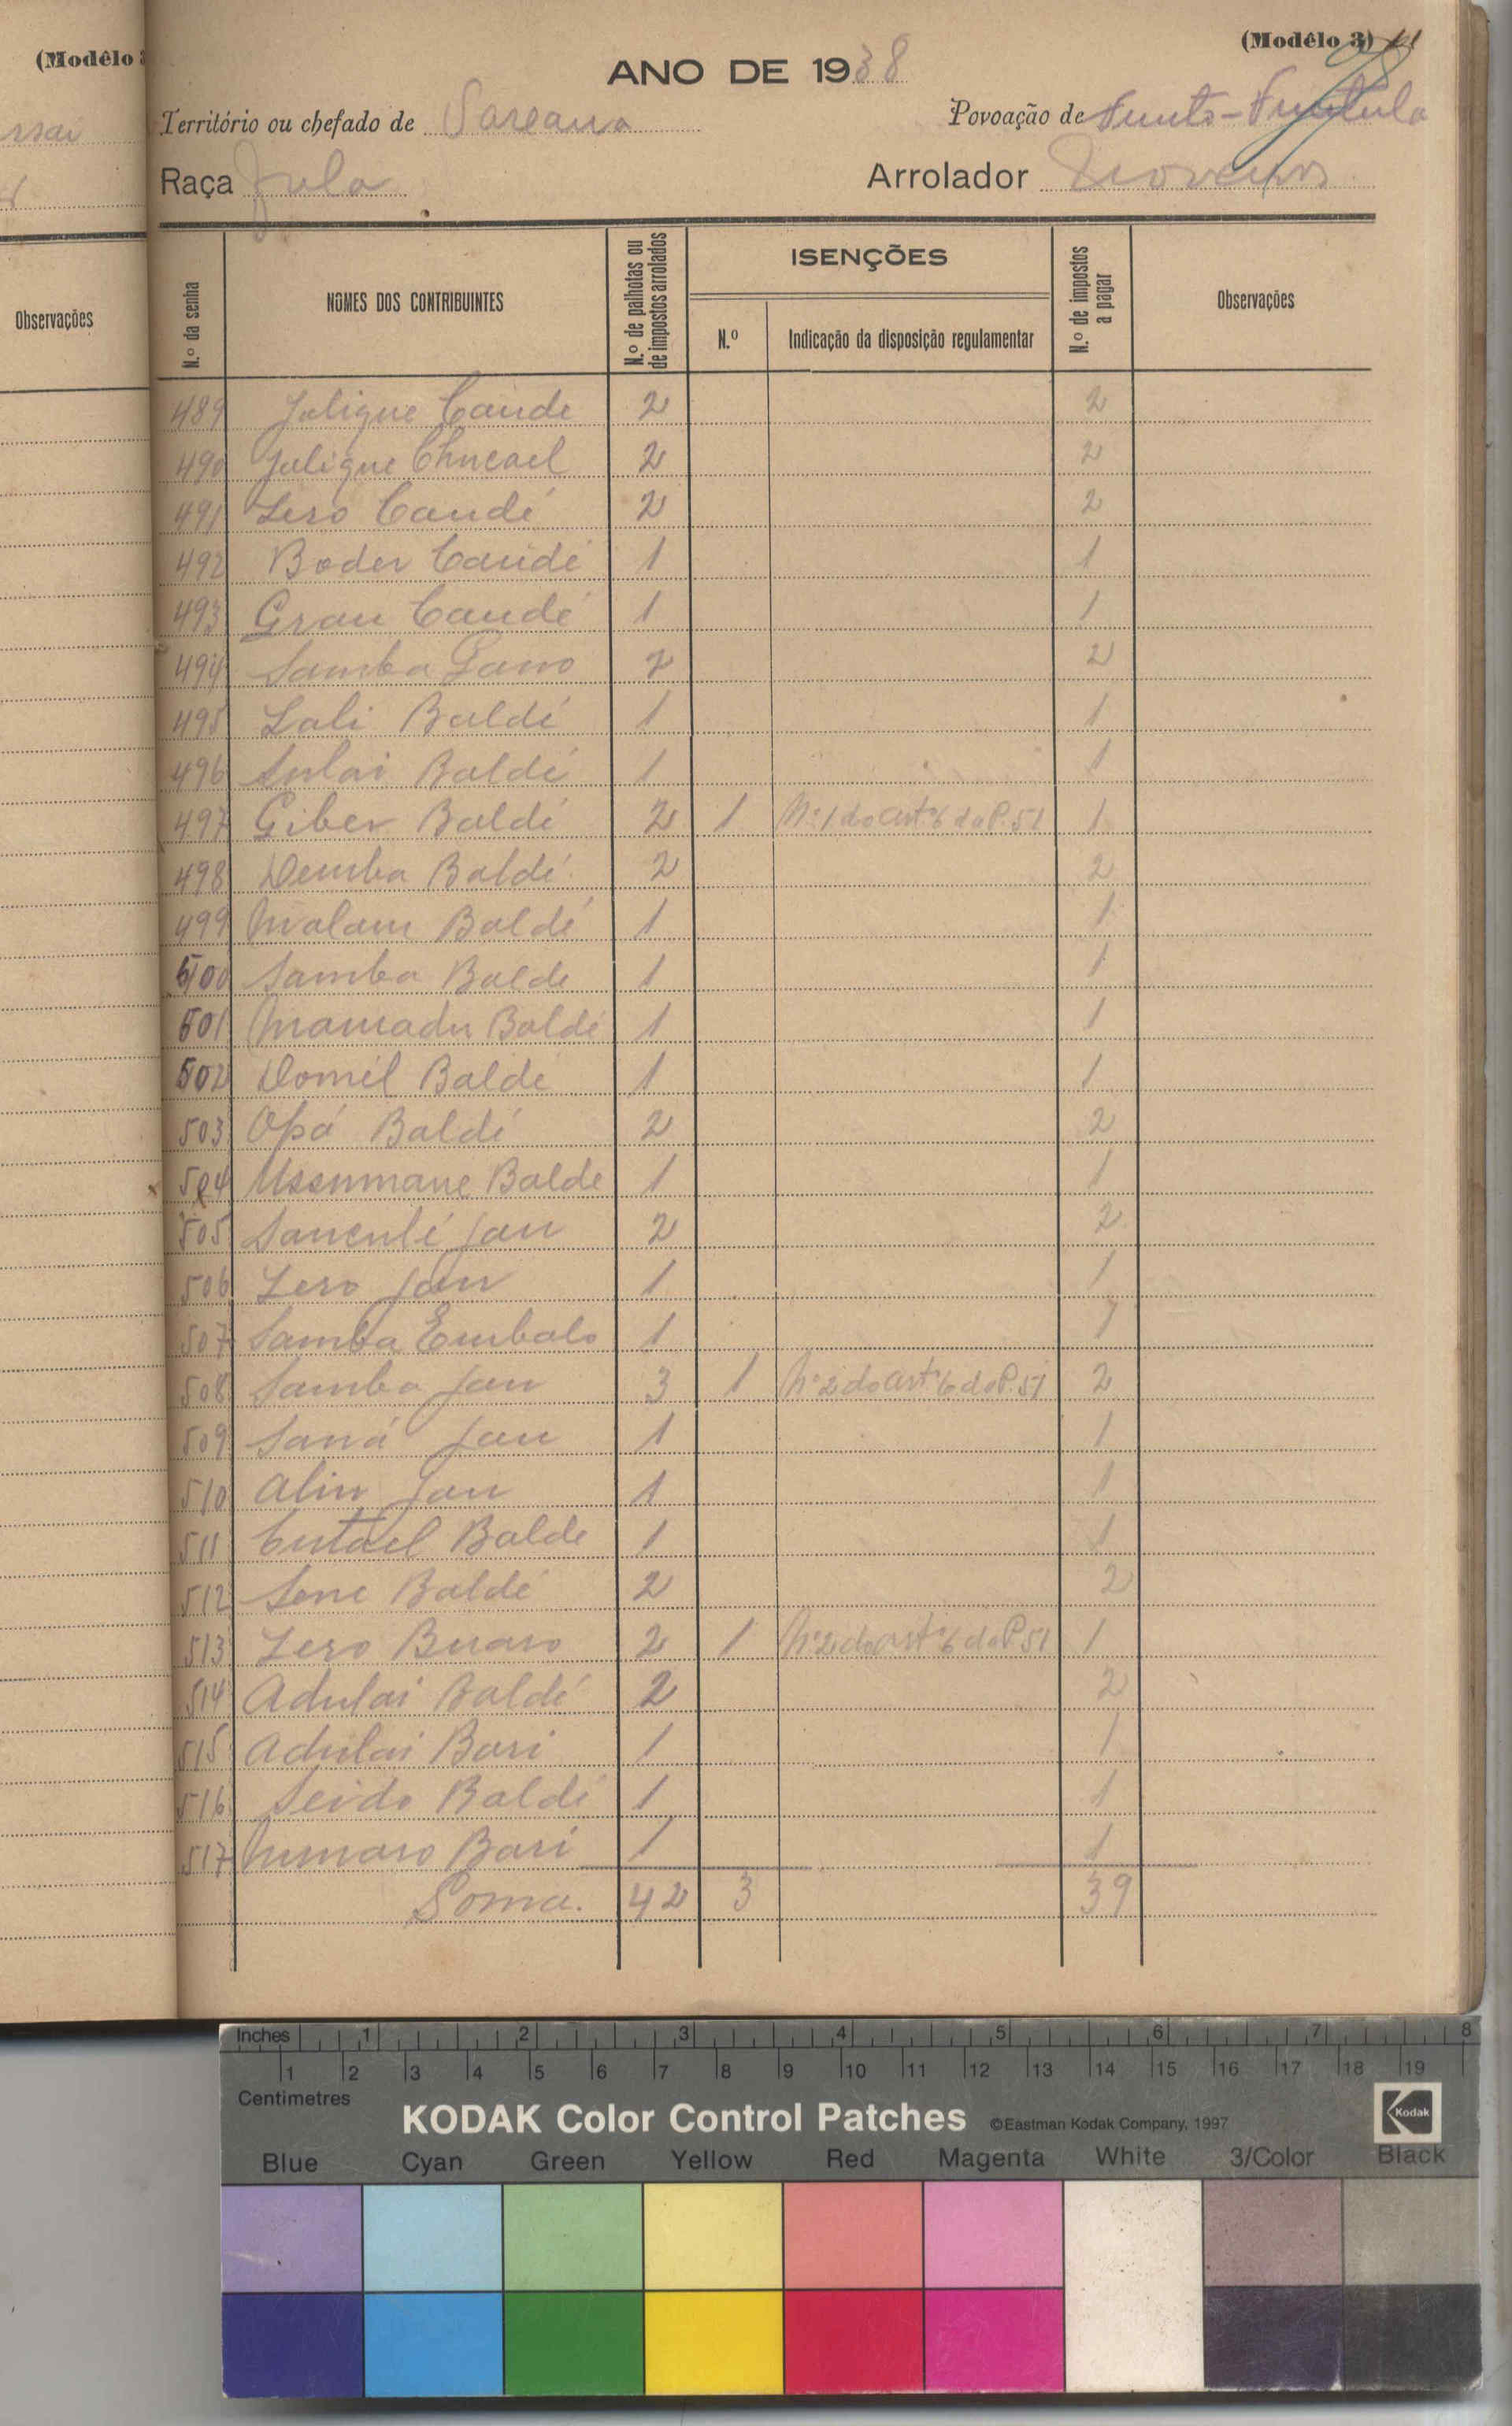 (Modêlo 3
(Modêlo 3) 11
ANO DE 1938
Território ou chefado de Sareana
Povoação de
Raça Fula
Arrolador
Observações
N.º da senha
NOMES DOS CONTRIBUINTES
N.º de palhotas ou de impostos arrolados
ISENÇÕES
N.º
Indicação da disposição regulamentar
N.º de impostos a pagar
Observações
489 Galique Candé 2 2
490 Galique 2 2
491 Lero Candé 2 2
492 Boder Candé 1 1
493 Grau Candé 1 1
494 Samba Gano 2 2
495 Lali Baldé 1 1
496 Sulai Baldé 1 1
497 Giber Baldé 2 1 Nº1 do artº 6 do P. 51 1
498 Demba Baldé 2 2
499 Malam Baldé 1 1
500 Samba Balde 1 1
501 Mamadu Baldé 1 1
502 Domél Baldé 1 1
503 Opá Baldé 2 2
504 Ussumane Balde 1 1
505 Sanculé Jau 2 2
506 Lero Jau 1 1
507 Samba Embalo 1 1
508 Samba Jau 3 1 Nº 2 do artº 6 do P. 51 2
509 Saná Jau 1 1
510 Aliu Jau 1 1
511 Cutael Balde 1 1
512 Sene Baldé 2 2
513 Lero Buaro 2 1 Nº 2 do artº 6 do P 51 1
514 Adulai Baldé 2 2
515 Adulai Bari 1 1
516 Seido Baldé 1 1
517 Numaro Bari 1 1
Soma. 42 3 39
Inches 1 2 3 4 5 6 7 8
1 2 3 4 5 6 7 8 9 10 11 12 13 14 15 16 17 18 19
Centimetres
KODAK Color Control Patches ©Eastman Kodak Company, 1997 Kodak
Blue Cyan Green Yellow Red Magenta White 3/Color Black